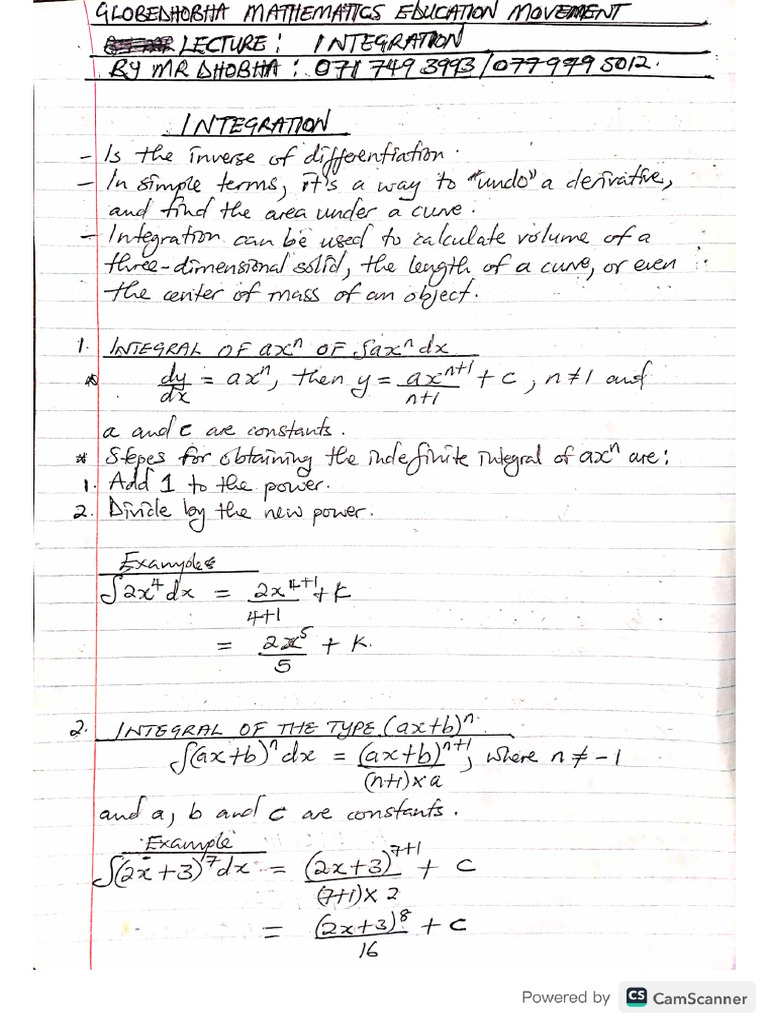 GLOBEDHOBHA MATHEMATICS EDUCATION MOVEMENT
LECTURE: INTEGRATION
BY MR DHOBHA: 071 749 3993/077 979 5012.
INTEGRATION
- Is the inverse of differentiation.
- In simple terms, it's a way to "undo" a derivative,
and find the area under a curve.
- Integration can be used to calculate volume of a
three-dimensional solid, the length of a curve, or even
the center of mass of an object.
1. INTEGRAL OF axⁿ OF ∫axⁿdx
* dy/dx = axⁿ, then y = ax^(n+1)/(n+1) + c, n≠1 and
a and c are constants.
* Stepes for obtaining the indefinite integral of axⁿ are:
1. Add 1 to the power.
2. Divide by the new power.
Examples
∫2x⁴dx = 2x^(4+1)/(4+1) + k
= 2x⁵/5 + k.
2. INTEGRAL OF THE TYPE (ax+b)ⁿ.
∫(ax+b)ⁿdx = (ax+b)^(n+1)/((n+1)×a), where n ≠ -1
and a, b and c are constants.
Example
∫(2x+3)⁷dx = (2x+3)^(7+1)/((7+1)×2) + c
= (2x+3)⁸/16 + c
Powered by CS CamScanner